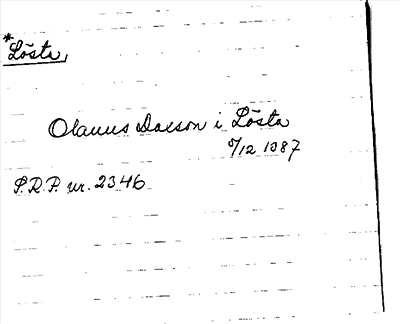 *Lösta,
Olauus Dacson i Lösta
9/12 1387
S.R.P. nr. 2346